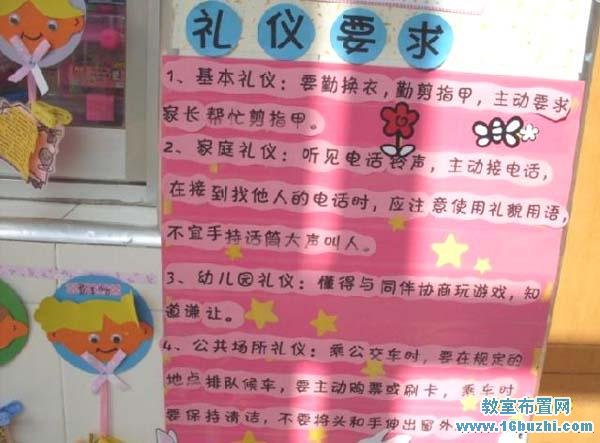 礼仪要求
1、基本礼仪：要勤换衣，勤剪指甲，主动要求
家长帮忙剪指甲。
2、家庭礼仪：听见电话铃声，主动接电话，
在接到找他人的电话时，应注意使用礼貌用语，
不宜手持话筒大声叫人。
3、幼儿园礼仪：懂得与同伴协商玩游戏，知
道谦让。
4、公共场所礼仪：乘公交车时，要在规定的
地点排队候车，要主动购票或刷卡，乘车时
要保持请洁，不要将头和手伸出窗外
教室布置网
www.16buzhi.com